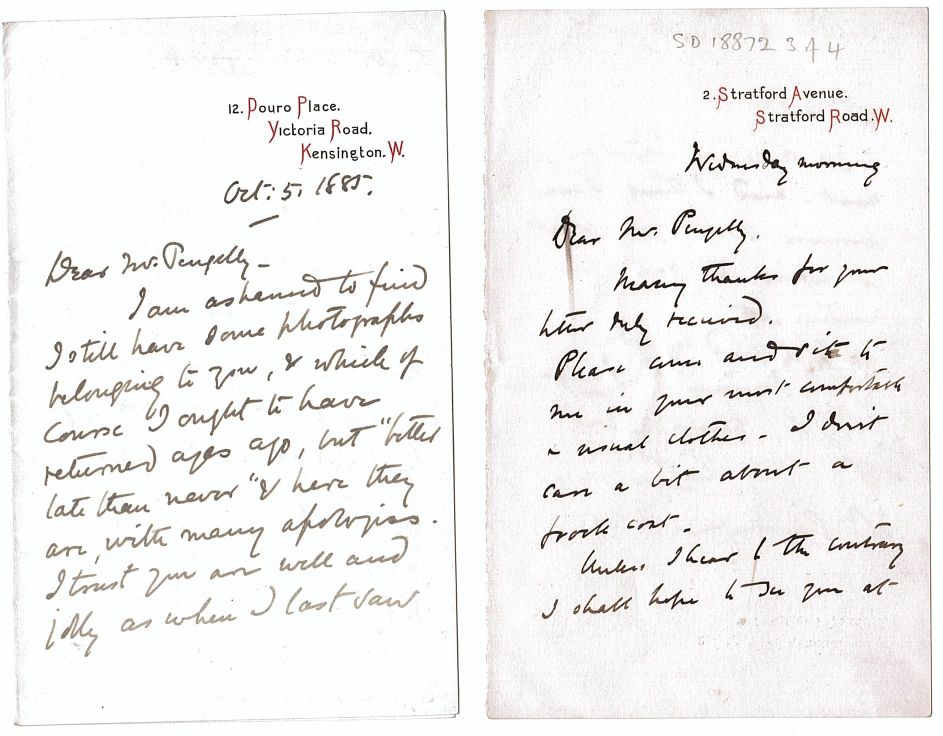 12. Douro Place.
Victoria Road.
Kensington. W.
Oct: 5. 1885.
Dear Mr. Pengelly –
I am ashamed to find
I still have some photographs
belonging to you, & which of
course I ought to have
returned ages ago, but "better
late than never" & here they
are, with many apologies.
I trust you are well and
jolly as when I last saw
SD 18872 3 A 4
2. Stratford Avenue.
Stratford Road. W.
Wednesday morning
Dear Mr. Pengelly.
Many thanks for your
letter duly received.
Please come and sit to
me in your most comfortable
& usual clothes – I don't
care a bit about a
frock coat.
Unless I hear to the contrary
I shall hope to see you at